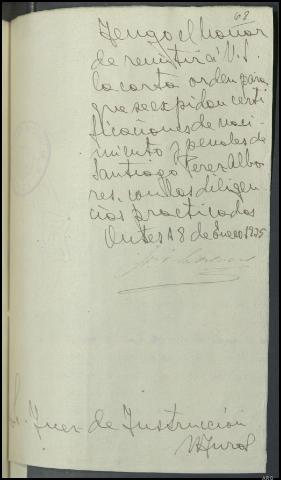 68
Tengo el honor
de remitir á V.S.
la carta orden para
que se expidan certi
ficaciones de naci-
miento y penales de
Santiago Perez Albo
res, con las diligen-
cias practicadas
Outes 18 de Enero 1935
Sr. Juez de Instrucción
Muros